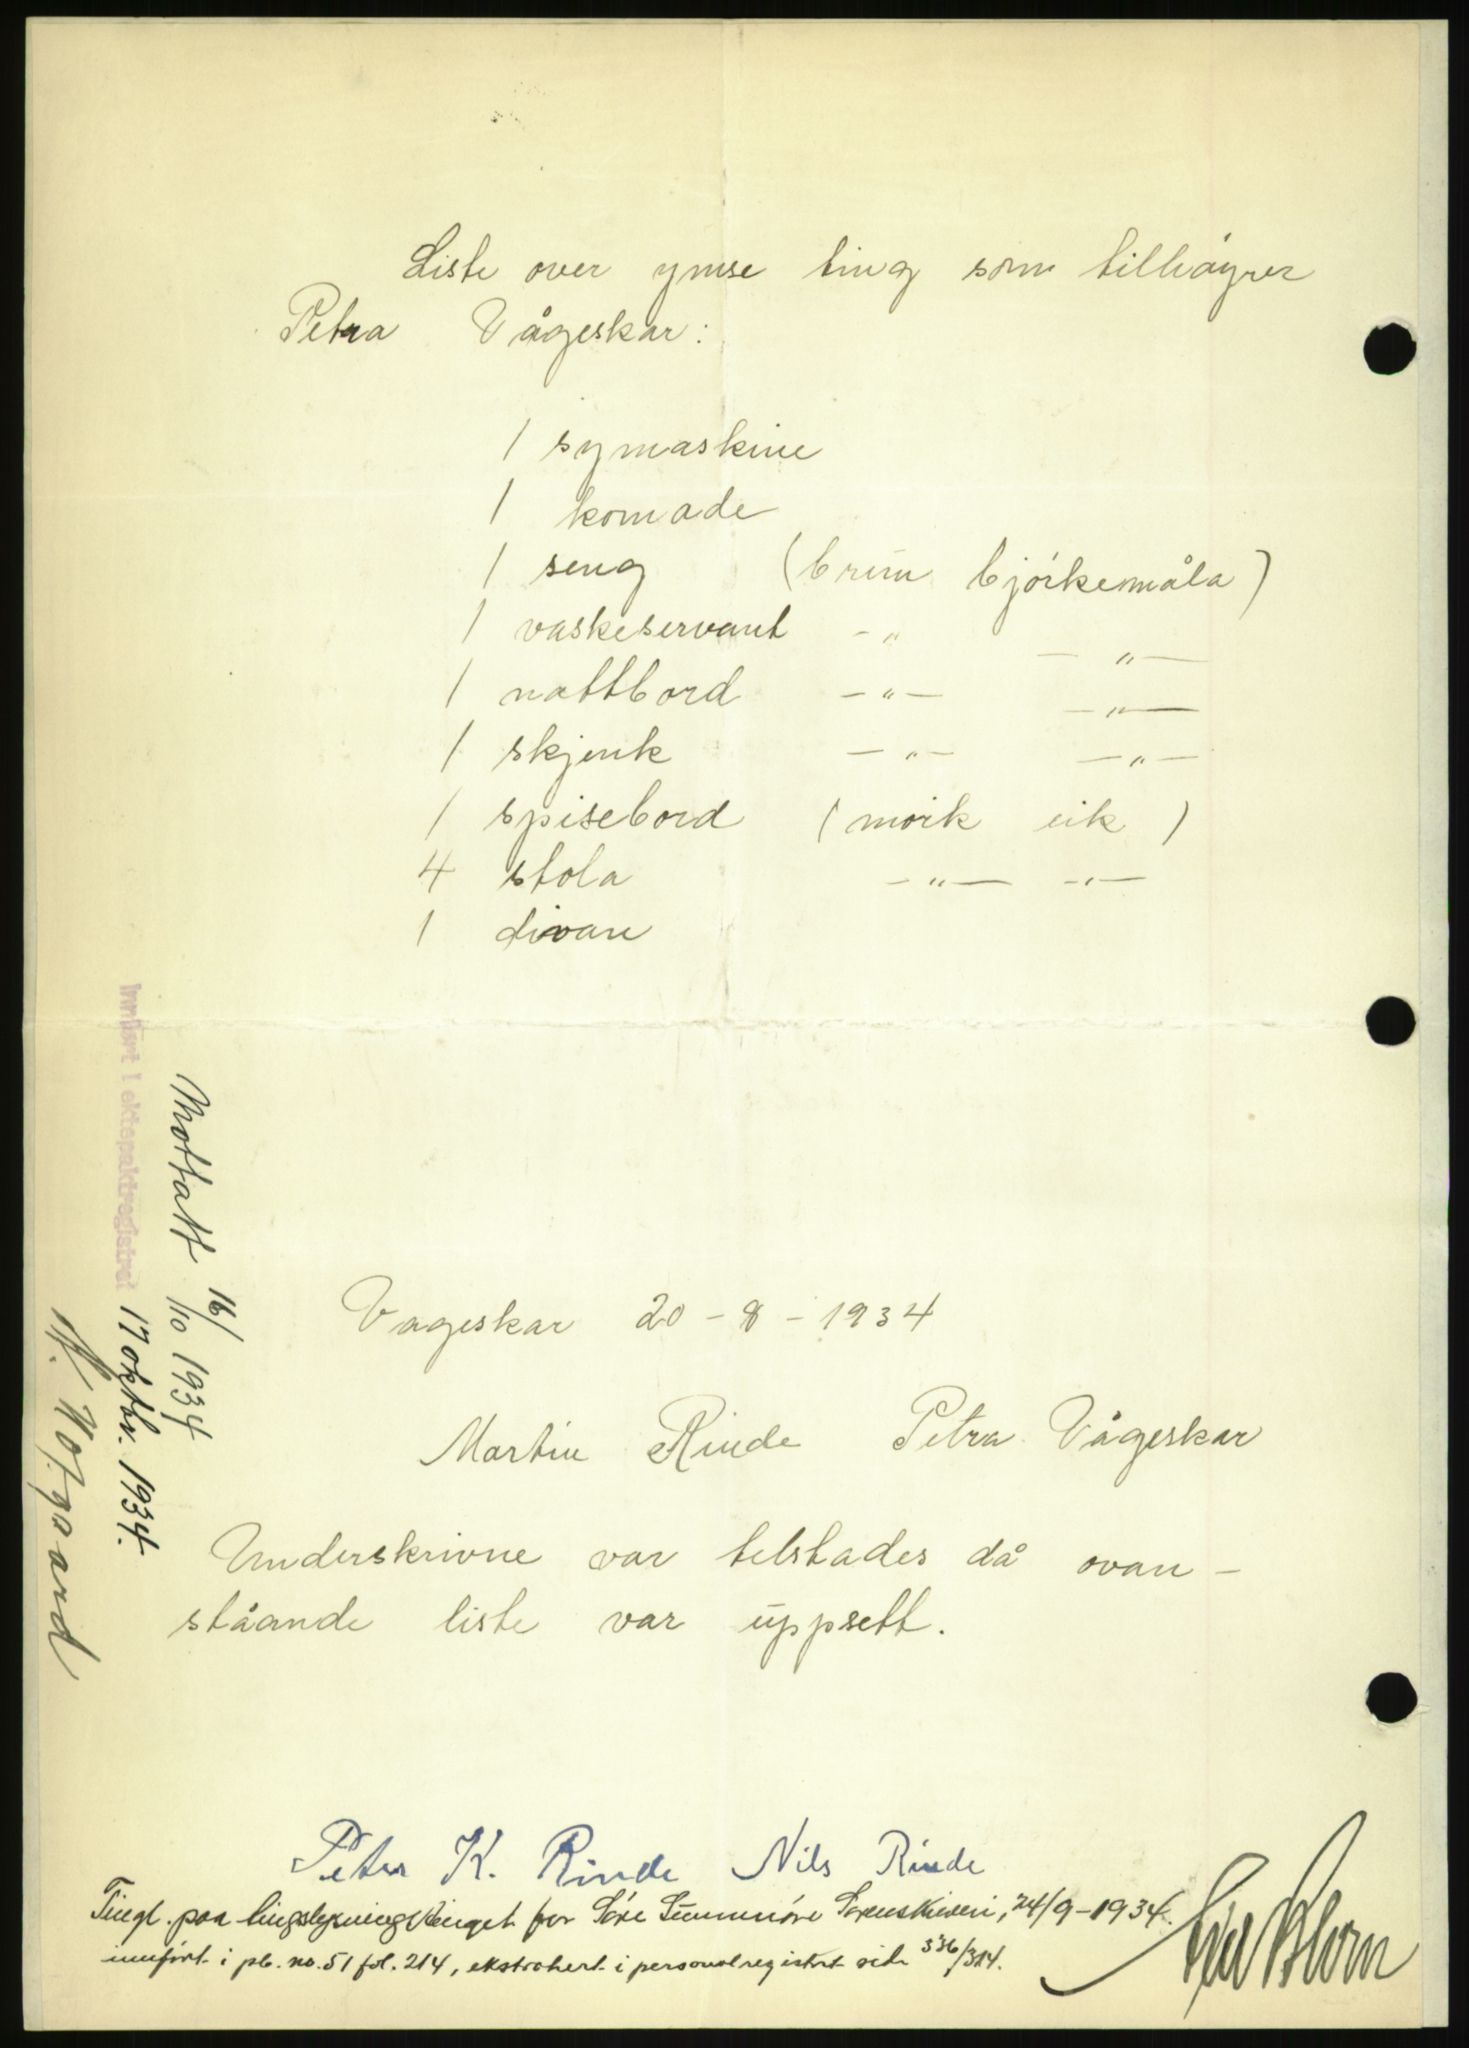 Liste over ymse ting som tilhöyrer
Petra Vågeskar:
1 symaskine
1 komode
1 seng (brun björkemåla)
1 vaskeservant -"- -"-
1 nattbord -"- -"-
1 skjenk -"- -"-
1 spisebord (mörk eik)
4 stola -"- -"-
1 divan
Vageskar 20-8-1934
Martin Rinde Petra Vågeskar
Underskrivne var telstades då ovan-
ståande liste var uppsett.
Peter K. Rinde Nils Rinde
Tingl. paa tinglysningstinget for Söre Sunnmöre Sorenskriveri, 24/9-1934.
innfört i pb. no. 51 fol. 214, ekstrahert i personalregistret side 336/314.
Mottatt 16/10 1934
Innført i ektepaktregistret 17 oktbr. 1934.